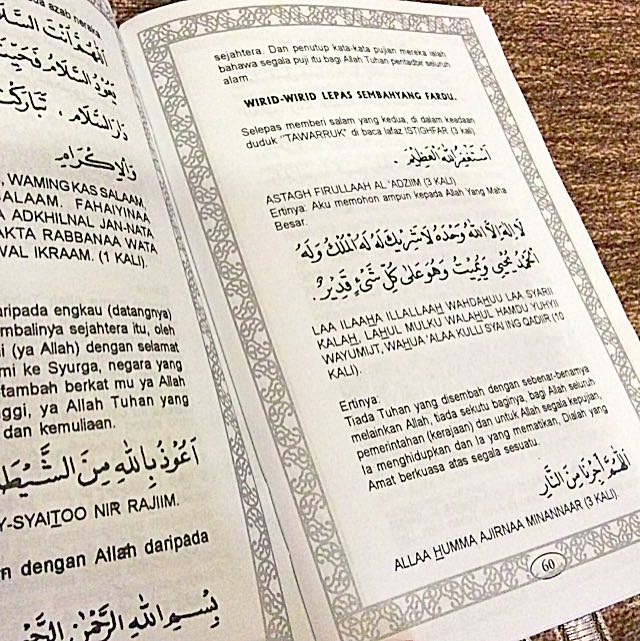 azab neraka
اَللّٰهُمَّ اَنْتَ السَّلَا
يَعُوْدُ السَّلَامُ فَحَيِّنَا
دَارَ السَّلَامِ . تَبَارَكْتَ
وَالْاِكْرَامِ
WAMING KAS SALAAM,
SALAAM. FAHAIYINAA
ADKHILNAL JAN-NATA
RABBANAA WATA
WAL IKRAAM. (1 KALI).
daripada engkau (datangnya)
kembalinya sejahtera itu, oleh
(ya Allah) dengan selamat
ke Syurga, negara yang
bertambah berkat mu ya Allah
ya Allah Tuhan yang
dan kemuliaan.
اَعُوْذُ بِاللّٰهِ مِنَ الشَّيْطَا
Y-SYAITOO NIR RAJIIM.
dengan Allah daripada
بِسْمِ اللّٰهِ الرَّحْمٰنِ الرَّحِـ
sejahtera. Dan penutup kata-kata pujian mereka ialah
bahawa segala puji itu bagi Allah Tuhan pentadbir seluruh
alam.
WIRID-WIRID LEPAS SEMBAHYANG FARDU.
Selepas memberi salam yang kedua, di dalam keadaan
duduk "TAWARRUK" di baca lafaz ISTIGHFAR (3 kali)
اَسْتَغْفِرُ اللّٰهَ الْعَظِيْمَ .
ASTAGH FIRULLAAH AL 'ADZIIM (3 KALI).
Ertinya: Aku memohon ampun kepada Allah Yang Maha
Besar.
لَا اِلٰهَ اِلَّا اللّٰهُ وَحْدَهُ لَا شَرِيْكَ لَهُ لَهُ الْمُلْكُ وَلَهُ
الْحَمْدُ يُحْيِيْ وَيُمِيْتُ وَهُوَ عَلٰى كُلِّ شَيْءٍ قَدِيْرٌ .
LAA ILAAHA ILLALLAAH WAHDAHUU LAA SYARII
KALAH, LAHUL MULKU WALAHUL HAMDU YUHYII
WAYUMIJT, WAHUA 'ALAA KULLU SYAI ING QADIR (10
KALI).
Ertinya:
Tiada Tuhan yang disembah dengan sebenar-benarnya
melainkan Allah, tiada sekutu baginya, bagi Allah seluruh
pemerintahan (kerajaan) dan untuk Allah segala kepujian,
Ia menghidupkan dan Ia yang mematikan, Dialah yang
Amat berkuasa atas segala sesuatu.
اَللّٰهُمَّ اَجِرْنَا مِنَ النَّارِ
ALLAA HUMMA AJIRNAA MINANNAAR (3 KALI).
60